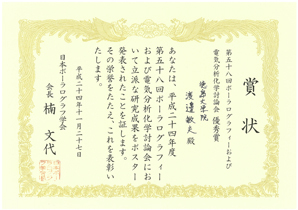 賞状
第五十八回ポーラログラフィーおよび
電気分析化学討論会 優秀賞
徳島文理大院
渡邊敏之殿
あなたは、平成二十四年度
第五十八回ポーラログラフィー
および電気分析化学討論会にお
いて立派な研究成果をポスター
発表されたことを証します。
その栄誉をたたえ、これを表彰い
たします。
平成二十四年十一月二十七日
日本ポーラログラフ学会
会長 楠 文代